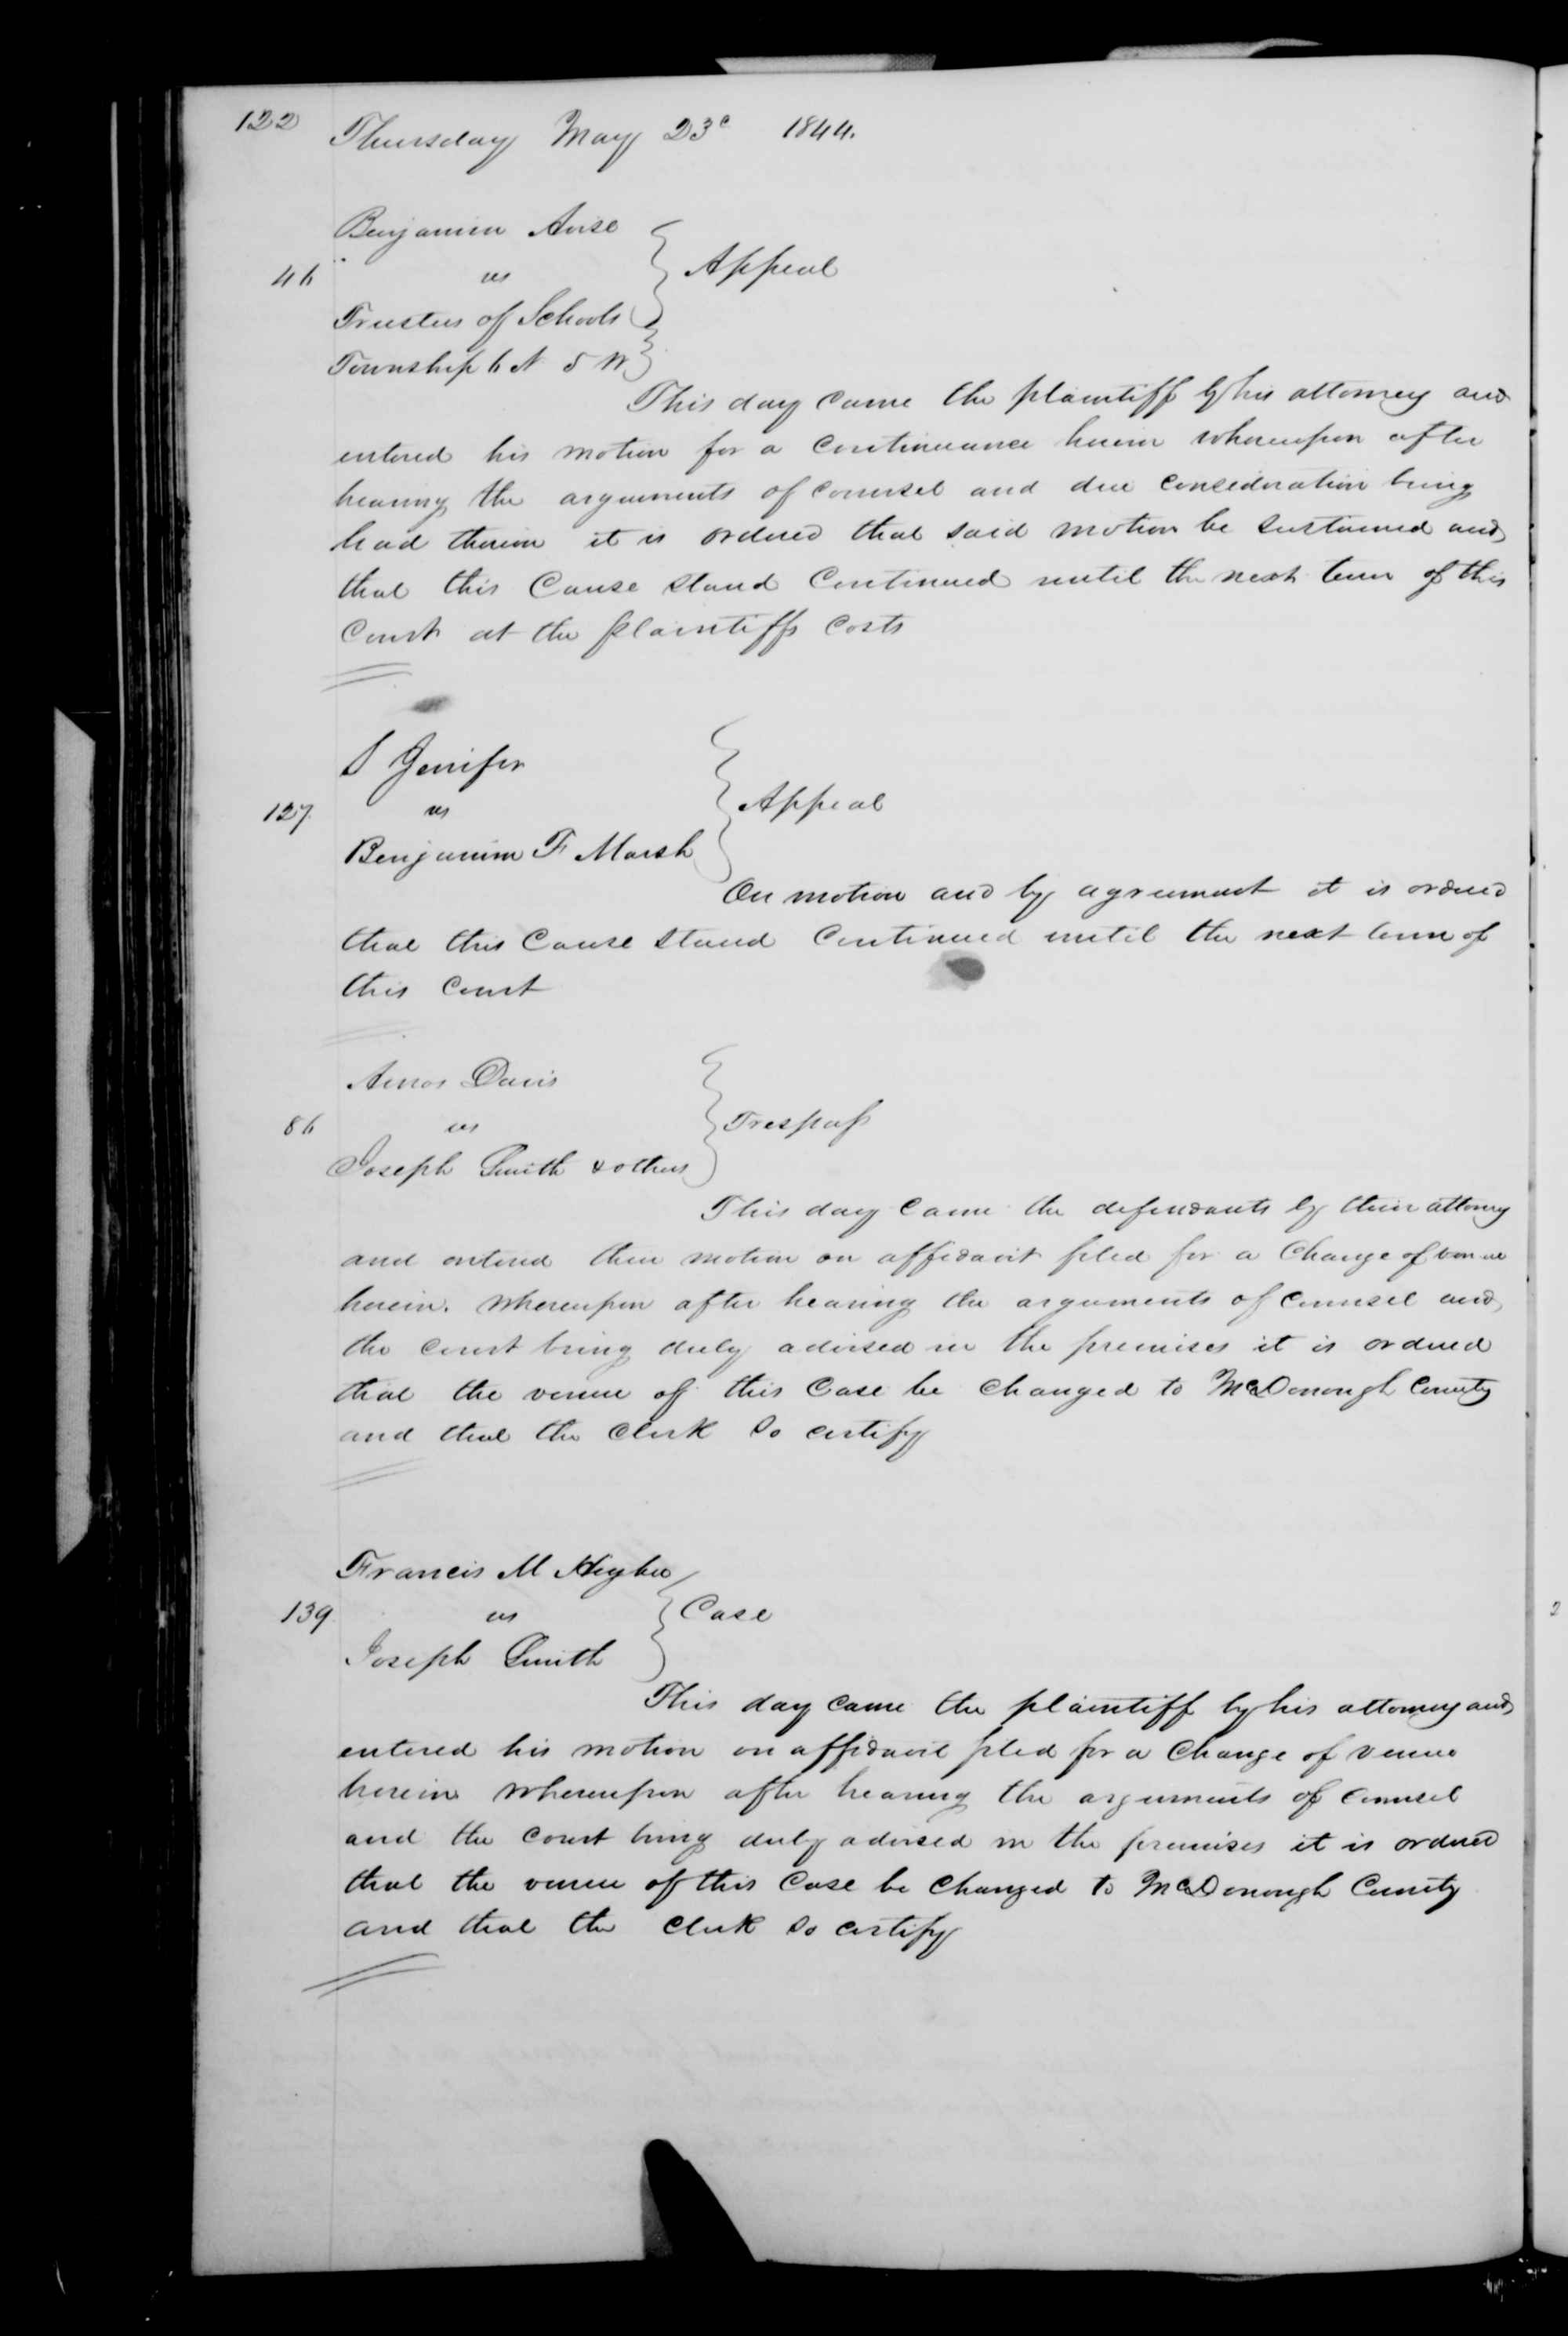 122 Thursday May 23d 1844.
Benjamin Avise
46 vs } Appeal
Trustees of Schools
Township 6 N 5 W
This day came the plaintiff by his attorney and
entered his motion for a continuance herein whereupon after
hearing the arguments of counsel and due consideration being
had therein it is ordered that said motion be sustained and
that this Cause stand Continued until the next term of this
Court at the plaintiffs Costs
S Jenifer
127. vs } Appeal
Benjamin F Marsh
On motion and by agreement it is ordered
that this Cause stand Continued until the next term of
this Court
Amos Davis
86 vs } Trespass
Joseph Smith & others
This day Came the defendants by their attorney
and entered their motion on affidavit filed for a Change of venue
herein. Whereupon after hearing the arguments of Counsel and
the Court being duly advised in the premises it is ordered
that the venue of this Case be Changed to McDonough County
and that the Clerk so certify
Francis M Higbee
139 vs } Case
Joseph Smith
This day came the plaintiff by his attorney and
entered his motion on affidavit filed for a Change of venue
herein Whereupon after hearing the arguments of Counsel
and the Court being duly advised in the premises it is ordered
that the venue of this Case be Changed to McDonough County
and that the Clerk so certify